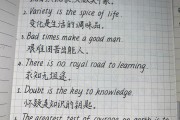 2. Variety is the spice of life.
变化是生活的调味品。
3. Bad times make a good man.
艰难困苦出能人。
4. There is no royal road to learning.
求知无坦途。
5. Doubt is the key to knowledge.
怀疑是知识的钥匙。
The greatest test of courage on earth is to